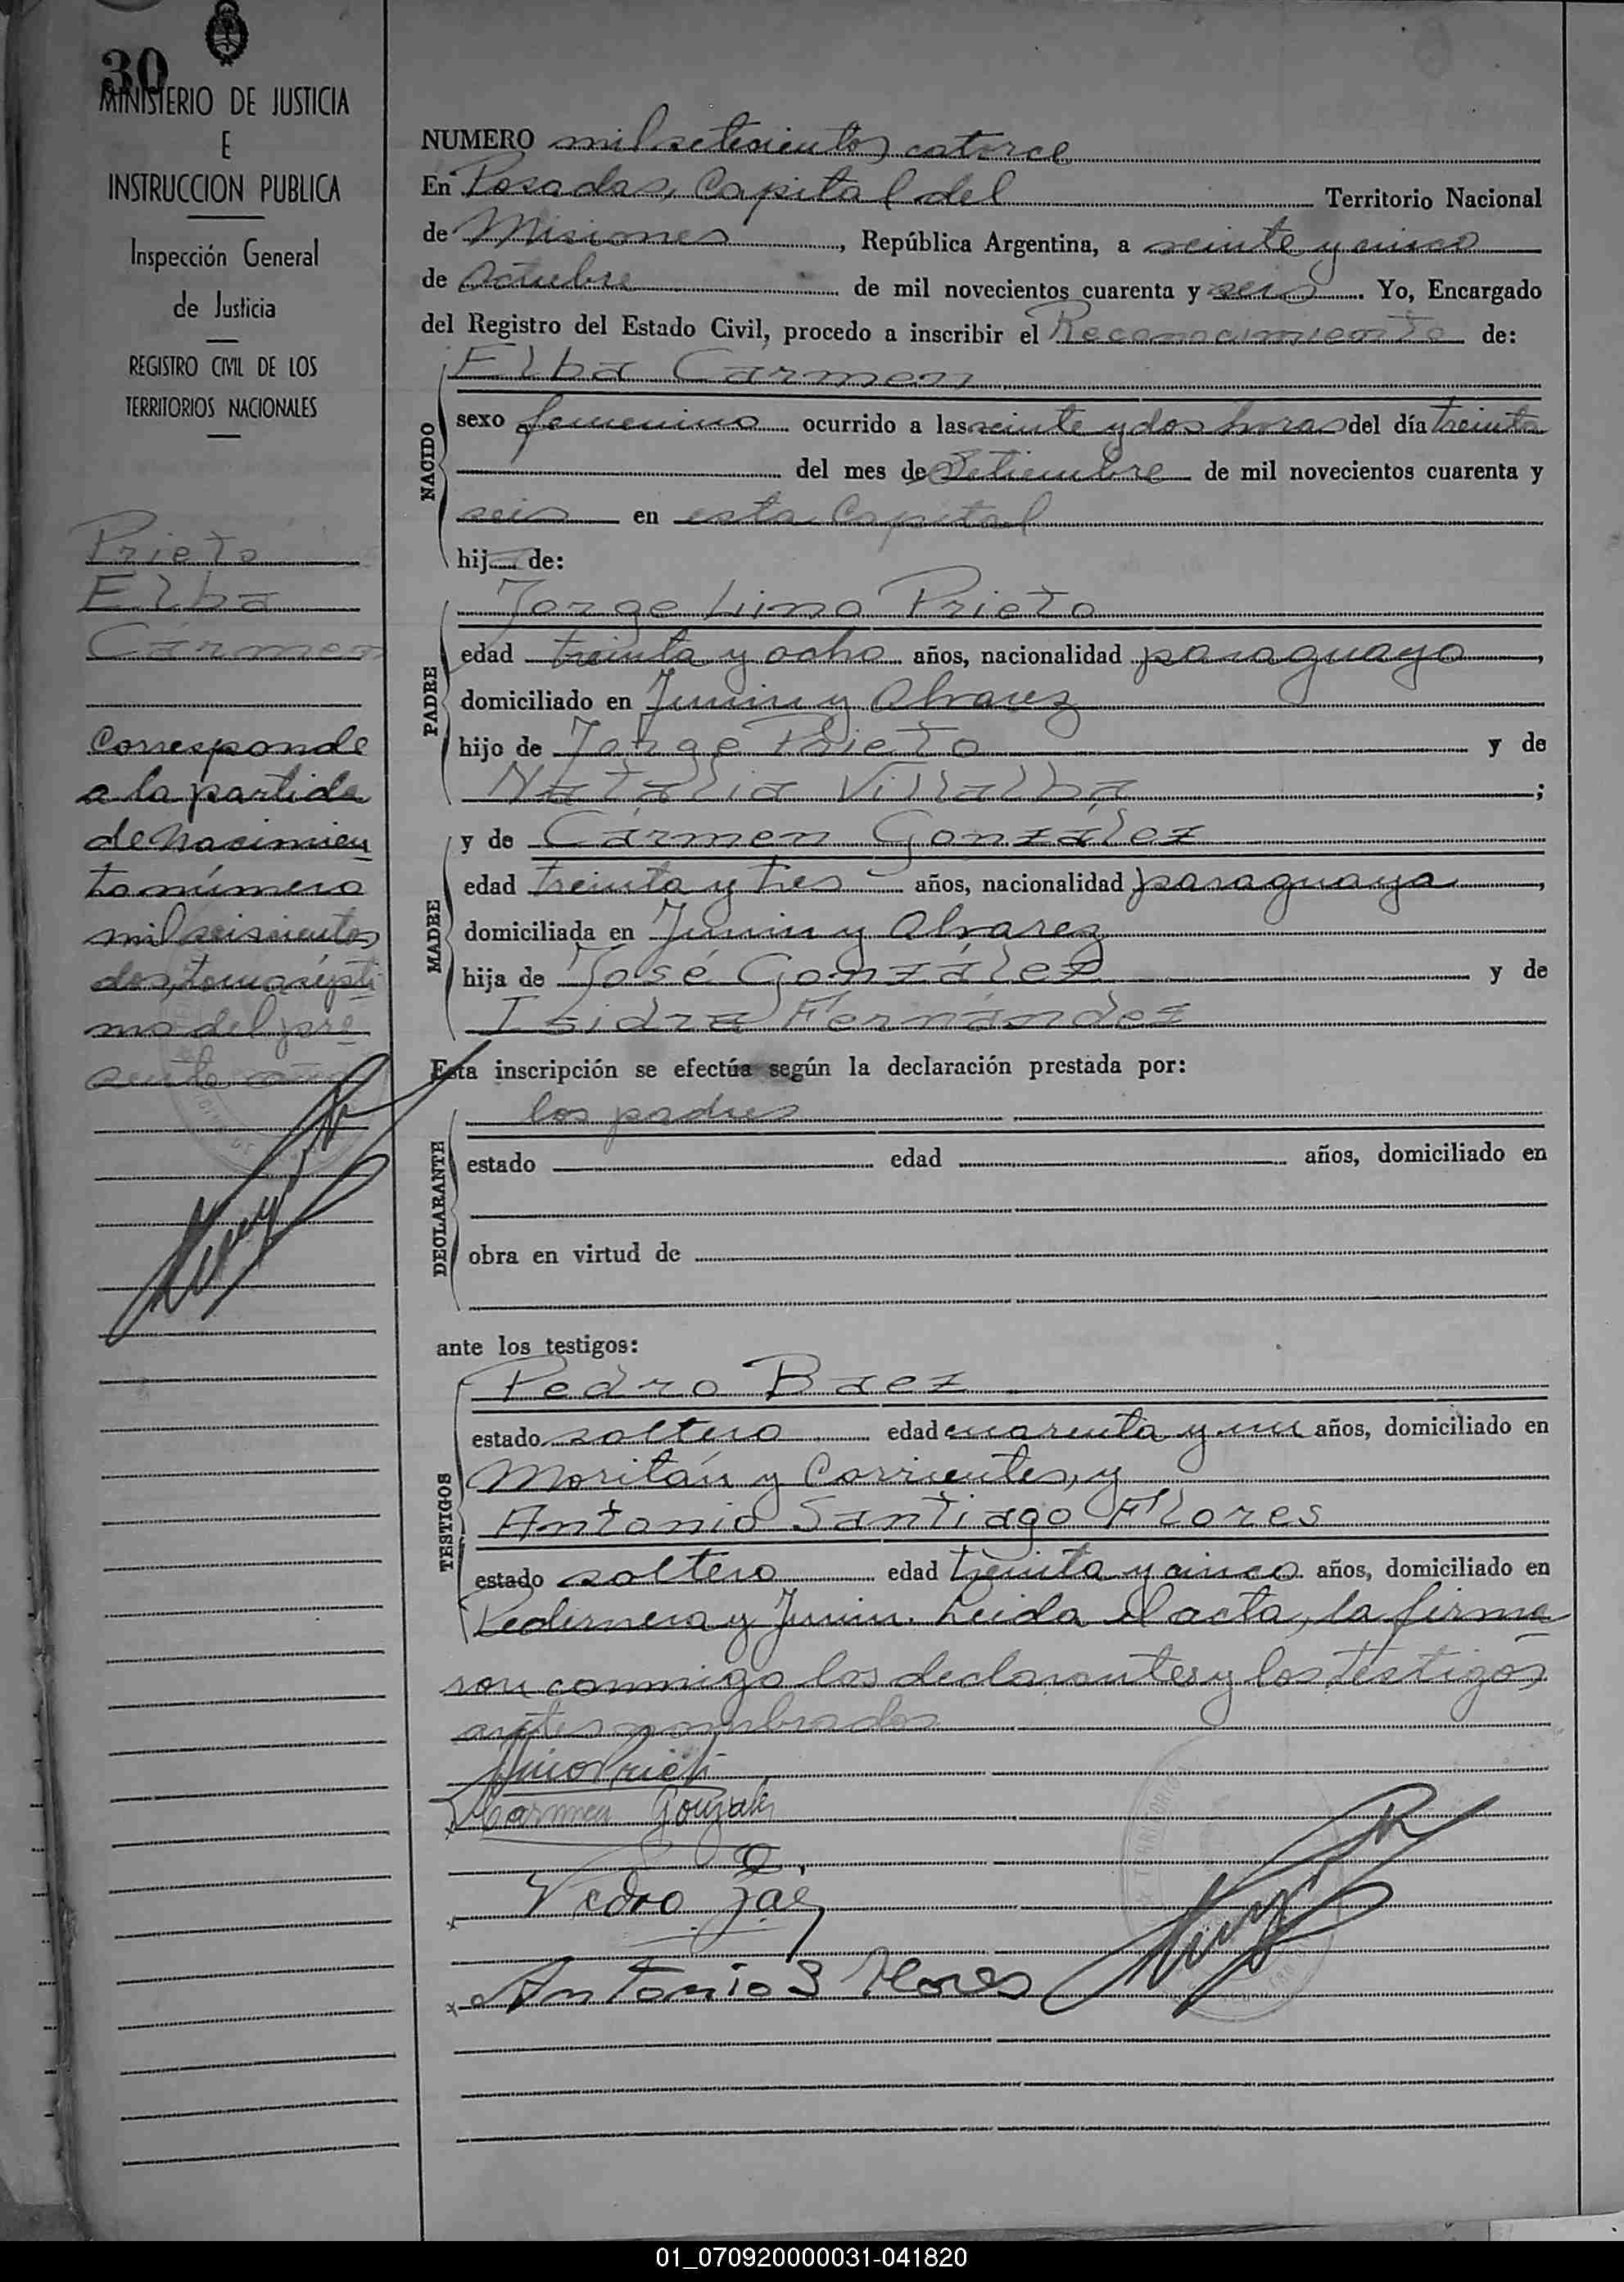 30
MINISTERIO DE JUSTICIA
E
INSTRUCCION PUBLICA
Inspección General
de Justicia
REGISTRO CIVIL DE LOS
TERRITORIOS NACIONALES
Prieto
Elba
Cármen
Corresponde
a la partida
de nacimien
to número
mil seiscientos
dos, tomo sépti
mo del pre
sente año
NUMERO mil setecientos catorce
En Posadas, Capital del Territorio Nacional
de Misiones, República Argentina, a veinte y cinco
de Octubre de mil novecientos cuarenta y seis. Yo, Encargado
del Registro del Estado Civil, procedo a inscribir el Reconocimiento de:
NACIDO
Elba Carmen
sexo femenino ocurrido a las veinte y dos horas del día treinta
del mes de Setiembre de mil novecientos cuarenta y
seis en esta Capital
hija de:
PADRE
Jorge Lino Prieto
edad treinta y ocho años, nacionalidad paraguayo,
domiciliado en Junin y Alvarez
hijo de Jorge Prieto y de
Natalia Villalba;
MADRE
y de Cármen González
edad treinta y tres años, nacionalidad paraguaya,
domiciliada en Junin y Alvarez
hija de José González y de
Isidra Fernández
Esta inscripción se efectúa según la declaración prestada por:
DECLARANTE
los padres
estado edad años, domiciliado en
obra en virtud de
ante los testigos:
TESTIGOS
Pedro Baez
estado soltero edad cuarenta y un años, domiciliado en
Moritán y Corrientes, y
Antonio Santiago Flores
estado soltero edad treinta y cinco años, domiciliado en
Pedernera y Junin. Leida el acta, la firma
ron conmigo los declarantes y los testigos
antes nombrados
Lino Prieto
Carmen Gonzalez
Pedro Baez
Antonio S Flores
01_070920000031-041820